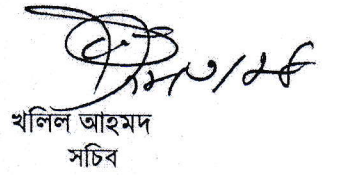 খলিল আহমদ
সচিব